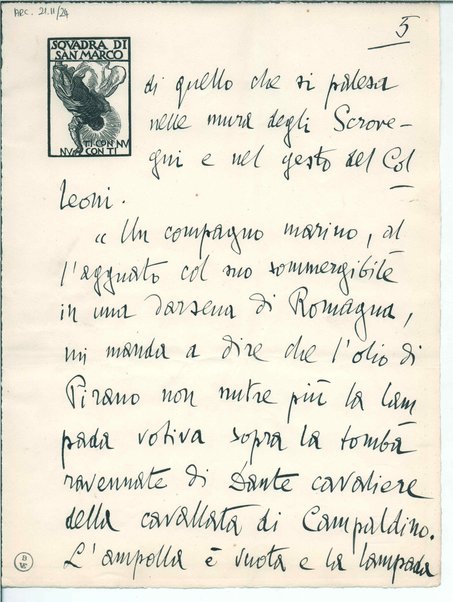 ARC. 21.II/24
5
SQVADRA DI
SAN MARCO
TI CON NV
NVI CON TI
di quello che si palesa
nelle mura degli Scrove-
gni e nel gesto del Col
leoni.
« Un compagno marino, al
l'agguato col suo sommergibile
in una darsena di Romagna,
mi manda a dire che l'olio di
Pirano non nutre più la lam
pada votiva sopra la tomba
ravennate di Dante cavaliere
della cavallata di Campaldino.
L'ampolla è vuota e la lampada